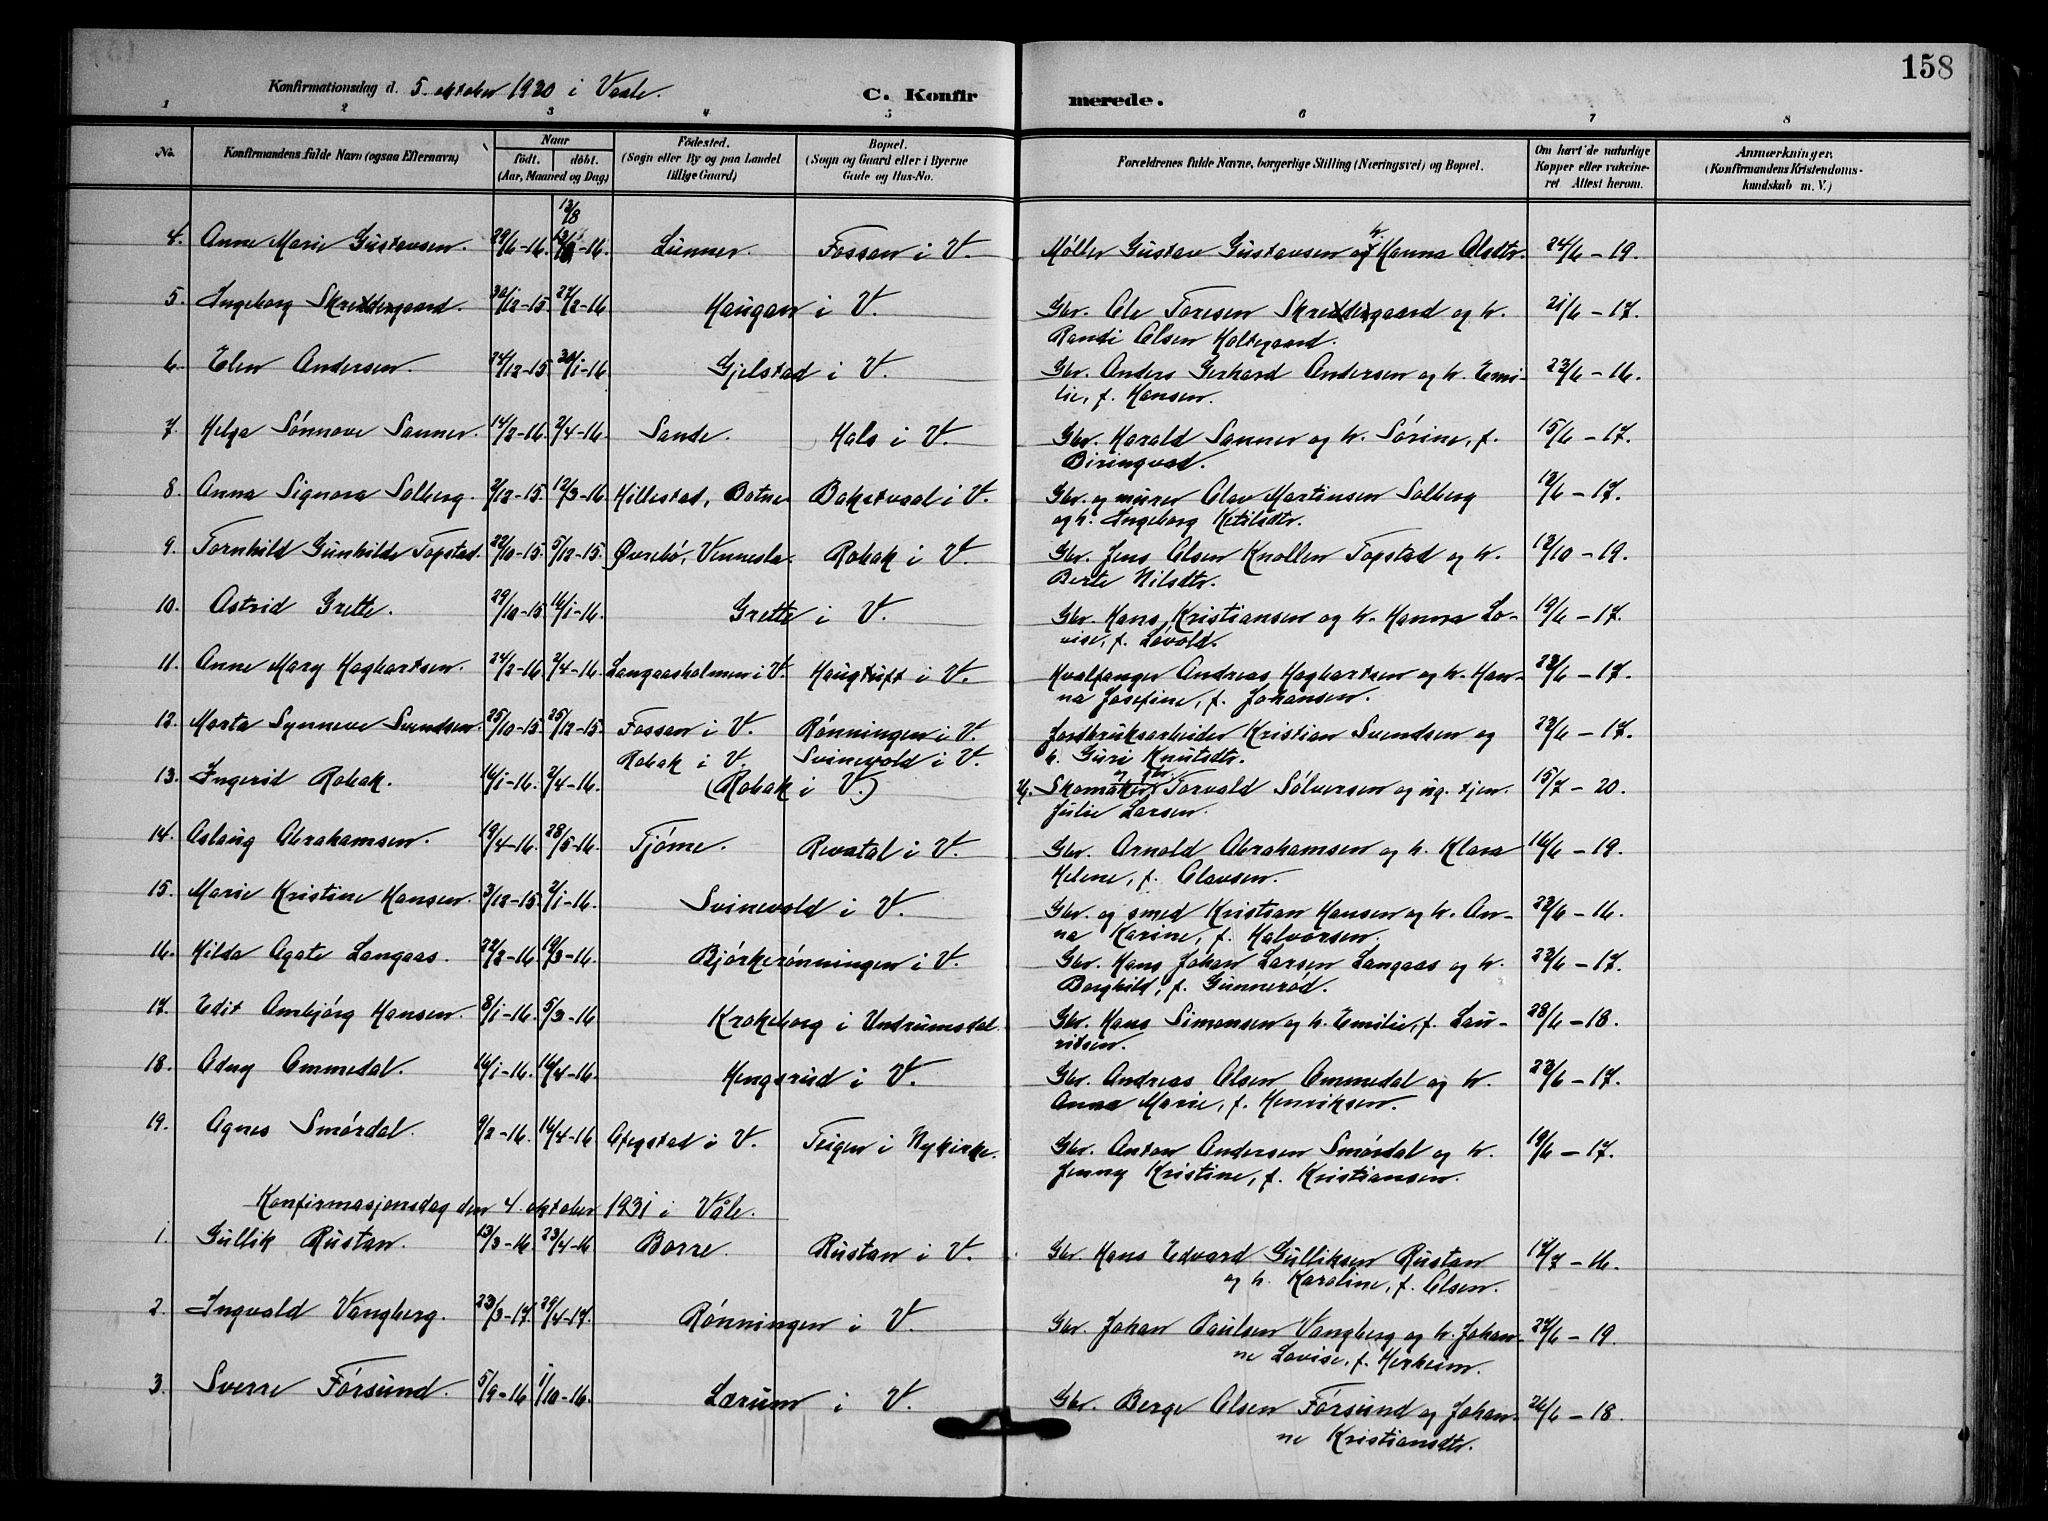 158
Konfirmationsdag d. 5. oktober 1930 i Vaale.
C. Konfirmerede.
1 2 3 4 5 6 7 8
No. Konfirmandens fulde Navn (ogsaa Efternavn) Naar født. døbt. (Aar, Maaned og Dag) Fødested. (Sogn eller By og paa Landet tillige Gaard) Bopæl. (Sogn og Gaard eller i Byerne Gade og Hus-No. Forældrenes fulde Navne, borgerlige Stilling (Næringsvei) og Bopæl. Om havt de naturlige Kopper eller vakcineret Attest herom. Anmærkninger, (Konfirmandens Kristendomskundskab m. V.)
13/8
4. Anne Marie Gustavsen. 29/6-16. -16. Lunner. Fossan i V. Møller Gustav Gustavsen og h. Hanna Olsdtr. 24/6 - 19.
5. Ingeborg Skreddergaard. 30/12-15. 27/2-16. Haugan i V. Gbr. Ole Toresen Skreddergaard og h. 21/6 - 17.
Randi Olsen Holtegaard.
6. Elen Andersen. 24/12-15. 30/1-16. Gjelstad i V. Gbr. Anders Gerhard Andersen og h. Emi- 23/6 - 16.
lie, f. Hansen.
7. Helga Sønnøve Sanner. 14/2-16. 2/4-16. Sande. Hals i V. Gbr. Harald Sanner og h. Sørine, f. 15/6 - 17.
Biringvad.
8. Anna Signora Solberg. 2/12-15. 12/3-16. Hillestad, Botne Bakstvaal i V. Gbr. og murer Olav Martinsen Solberg 12/6 - 17.
og h. Ingeborg Ketilsdtr.
9. Tornhild Gunhilde Topstad. 22/10-15. 5/12-15. Øvrebø, Vennesla. Robak i V. Gbr. Jens Olsen Knollen Topstad og h. 12/10 - 19.
Berte Nilsdtr.
10. Astrid Grette. 29/10-15. 16/1-16. Grette i V. Gbr. Hans Kristiansen og h. Hanna Lo- 19/6 - 17.
vise, f. Løvold.
11. Anne Mary Hagbartsen. 24/2-16. 2/4-16. Langaasholmen i V. Haugtuft i V. Hvalfanger Andreas Hagbartsen og h. Han- 23/6 - 17.
na Josefine, f. Johansen.
12. Marta Synneve Svendsen. 25/10-15. 25/12-15. Fossan i V. Rønningen i V. Jordbruksarbeider Kristian Svendsen og 23/6 - 17.
h. Guri Knutsdtr.
Robak i V. Svinevold i V.
13. Ingerid Robak. 16/1-16. 2/4-16. (Robak i V.) U. Skomaker og gbr. Torvald Sølversen og ug. tjen. 15/7 - 20.
Julie Larsen.
14. Aslaug Abrahamsen. 19/4-16. 28/5-16. Tjøme. Revatal i V. Gbr. Arnold Abrahamsen og h. Klara 16/6 - 19.
Helene, f. Olavsen.
15. Marie Kristine Hansen. 3/12-15. 2/1-16. Svinevold i V. Gbr. og smed Kristian Hansen og h. An- 23/6 - 16.
na Karine, f. Halvorsen.
16. Hilda Agate Langaas. 22/2-16. 19/3-16. Bjørkerønningen i V. Gbr. Hans Johan Larsen Langaas og h. 23/6 - 17.
Borghild, f. Gunnerød.
17. Edit Ambjørg Hansen. 8/1-16. 5/3-16. Krakeborg i Undrumsdal. Gbr. Hans Simonsen og h. Emilie, f. Lau- 28/6 - 18.
ritsen.
18. Odny Ommedal. 16/1-16. 16/4-16. Hengsrud i V. Gbr. Andreas Olsen Ommedal og h. 23/6 - 17.
Anna Marie, f. Henriksen.
19. Agnes Smørdal. 9/2-16. 16/4-16. i V. Teigen i Nykirke. Gbr. Anton Andersen Smørdal og h. 19/6 - 17.
Jenny Kristine, f. Kristiansen.
Konfirmasjonsdag den 4. oktober 1931 i Våle.
1. Gullik Rustan. 13/3-16. 23/4-16 Borre. Rustan i V. Gbr. Hans Edvard Gulliksen Rustan 17/7 - 16.
og h. Karoline, f. Olsen.
2. Ingvald Vangberg. 23/3-17. 29/4-17. Rønningen i V. Gbr. Johan Paulsen Vangberg og h. Johan- 27/6 - 19.
ne Lovise, f. Herheim.
3. Sverre Førsund. 5/9-16. 1/10-16. Lærum i V. Gbr. Berge Olsen Førsund og Johan- 26/6 - 18.
ne Kristiansdtr.